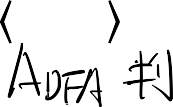 〈 〉
ADFA 판